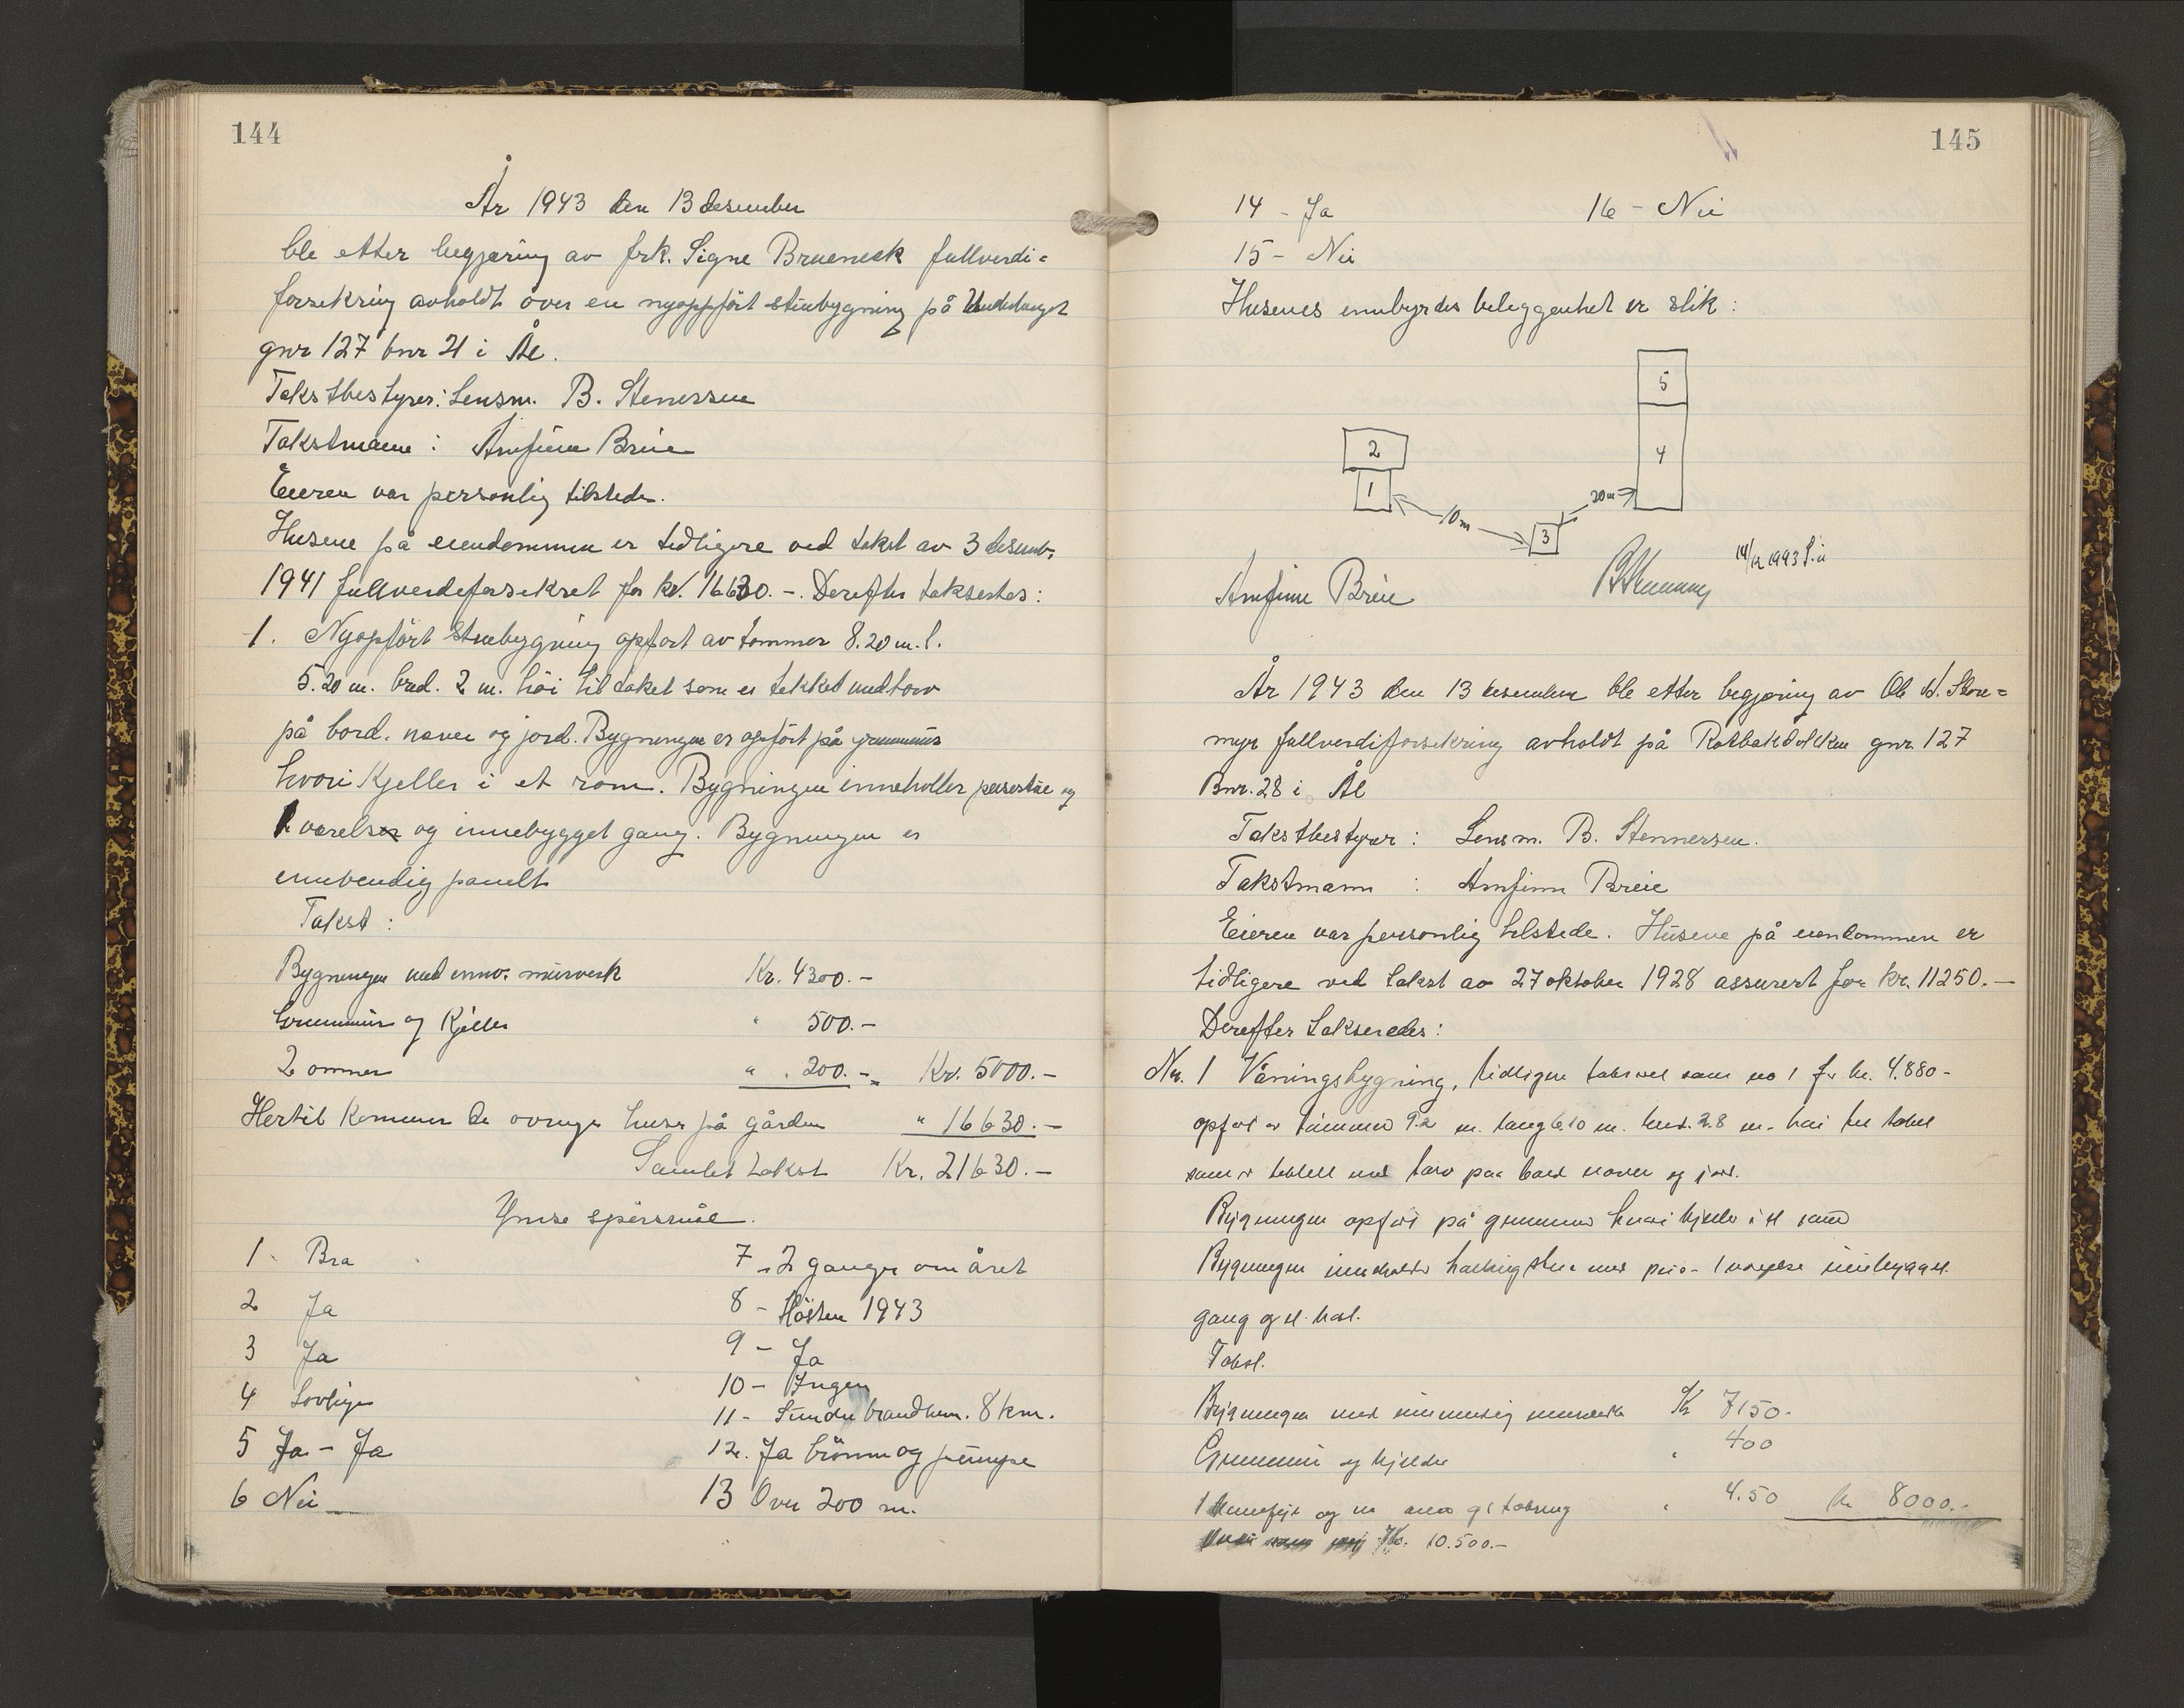 144
År 1943 den 13 desember
ble etter begjæring av frk. Signe fullverdi=
forsekring avholdt over en nyoppført stuebygning på
gnr 127 bnr 21 i Ål.
Takstbestyrer: Lensm. B. Stenersen
Takstmann : Arnfinn Breie
Eieren var personlig tilstede.
Husene på eiendommen er tidligere ved takst av 3 desemb.
1941 fullverdeforsekret for kr. 16630.-. Derefter takseres:
1. Nyopført stuebygning opført av tømmer 8.20 m. l.
5.20 m. bred. 2 m. høi til taket som er tekket med torv
på bord, never og jord. Bygningen er opført på grunnmur
hvori kjeller i et rom. Bygningen inneholder peisestue og
1 værelse og innebygget gang. Bygningen er
innvendig panelt
Takst :
Bygningen med innv. murverk Kr. 4300.-
Grunnmur og Kjeller " 500.-
2 omner " 200.- Kr. 5000.-
Hertil kommer de øvrige huser på gården " 16630.-
Samlet takst Kr. 21630.-
Ymse spørsmål.
1 Bra
2 Ja
3 Ja
4 Lovlige
5 Ja - Ja
6 Nei
7 - 2 ganger om året
8 - Høsten 1943
9 - Ja
10 - Ingen
11 - Sundre brandkum. 8 km.
12. Ja brønn og pumpe
13 Over 200 m.
145
14 - Ja 16 - Nei
15 - Nei
Husenes innbyrdes beliggenhet er slik :
5
4
2
1
3
10 m
20 m
Arnfinn Breie
År 1943 den 13 desember ble etter begjæring av Ole
myr fullverdiforsekring avholdt på gnr. 127
Bnr. 28 i Ål
Takstbestyrer : Lensm. B. Stennersen.
Takstmann : Arnfinn Breie
Eieren var personlig tilstede. Husene på eiendommen er
tidligere ved takst av 27 oktober 1928 assurert for kr. 11250.-
Derefter takseredes:
No. 1 Våningsbygning, tidligere taksert som no 1 for kr. 4.880-
opført av tømmer 9.2 m. lang 6.10 m. bred. 2.8 m. høi til taket
som er tekket med torv paa bord never og jord.
Bygningen opført på grunnmur hvori kjeller i et rum
Bygningen inneholder med peis - 1 værelse innebygget
gang og et
Takst.
Bygningen med innvendig murverk Kr 7150.-
Grunnmur og kjeller " 400
1 og en " 4.50 kr 8000.-
Kr. 10.500.-